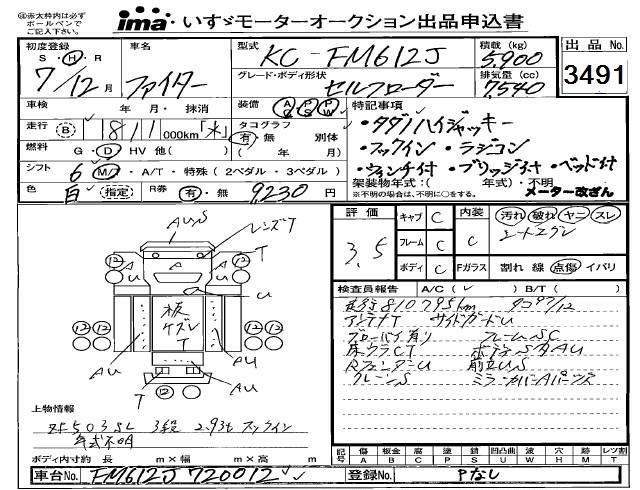 ㊟赤太枠内は必ず
ボールペンで
ご記入下さい。
ima いすゞモーターオークション出品申込書
初度登録
S・Ⓗ・R
7/12月
車名
ファイター
型式
KC-FM612J
グレード・ボディ形状
セルフローダー
積載(kg)
5,900
排気量(cc)
7,540
出品No.
3491
車検
年 月・抹消
装備
AC PS PW
特記事項
・タダノハイジャッキー
・フックイン・ラジコン
・ウインチ付・ブリッジ付・ベッド付
架装物年式:( 年式)・不明
※不明の場合は、不明に○をする。
メーター改ざん
走行
Ⓑ 811000km「メ」
タコグラフ
有・無 別体
( 年 月)
燃料
G・Ⓓ・HV 他( )
シフト
6 Ⓜ・A/T・特殊(2ペダル・3ペダル)
色
白 指定
R券
有・無 9,230円
評価
3.5
キャブ C
フレーム C
ボディ C
内装
C
汚れ 破れ ヤニ スレ
シートエグレ
Fガラス 割れ 線 点傷 イバリ
検査員報告 A/C(✓) B/T( )
走行810795km タコ97/12
アンテナT サイドガードU
ブローバイ有り フレームSC
床ウラCT ボデーSダAU
RフェンダーU 前立US
クレーンS ミラーカバーAパーツズ
AU,S
レンズT
T
U
12
板
ケズレ
T
AU
AU
AU
AU
T
12
上物情報
ZF503SL 3段 2.93t フックイン
年式不明
ボディ内寸約 長 m×幅 m×高 m
記号
傷 A
板金 B
腐 C
塗 P
錆 S
凹凸曲 U
波 W
穴 H
跡 M
要交換 T
レツ割 1
車台No. FM612J720012
登録No. Pなし